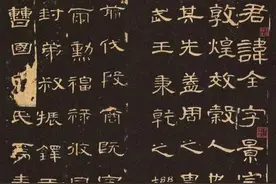 君諱全字景完
敦煌效穀人也
其先蓋周之胄
武王秉乾之機
翦伐殷商既定
爾勳福祿攸同
封弟叔振鐸于
曹國因氏焉秦